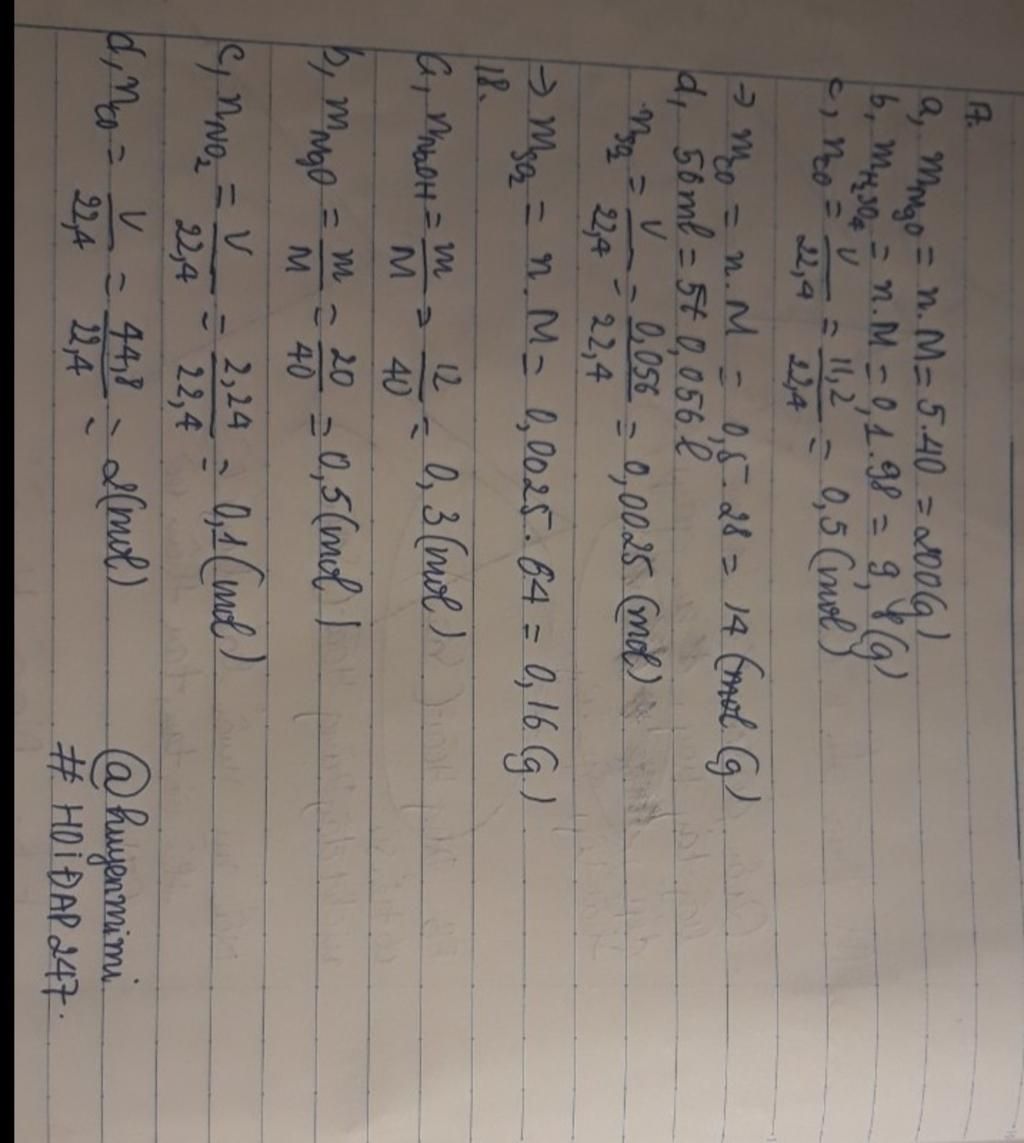 17.
a, mMgO = n.M = 5.40 = 200(g)
b, mH2SO4 = n.M = 0,1.98 = 9,8(g)
c, nCO = V/22,4 = 11,2/22,4 = 0,5(mol)
→ mCO = n.M = 0,5.28 = 14 (mol (g)
d, 56ml = 56 0,056l
nSO2 = V/22,4 = 0,056/22,4 = 0,0025 (mol)
→ mSO2 = n.M = 0,0025.64 = 0,16 (g)
18.
a, nNaOH = m/M = 12/40 = 0,3(mol)
b, mMgO = m/M = 20/40 = 0,5(mol)
c, nNO2 = V/22,4 = 2,24/22,4 = 0,1(mol)
d, nCO = V/22,4 = 44,8/22,4 = 2(mol)
@huyenmimi
# HOIĐAP247.